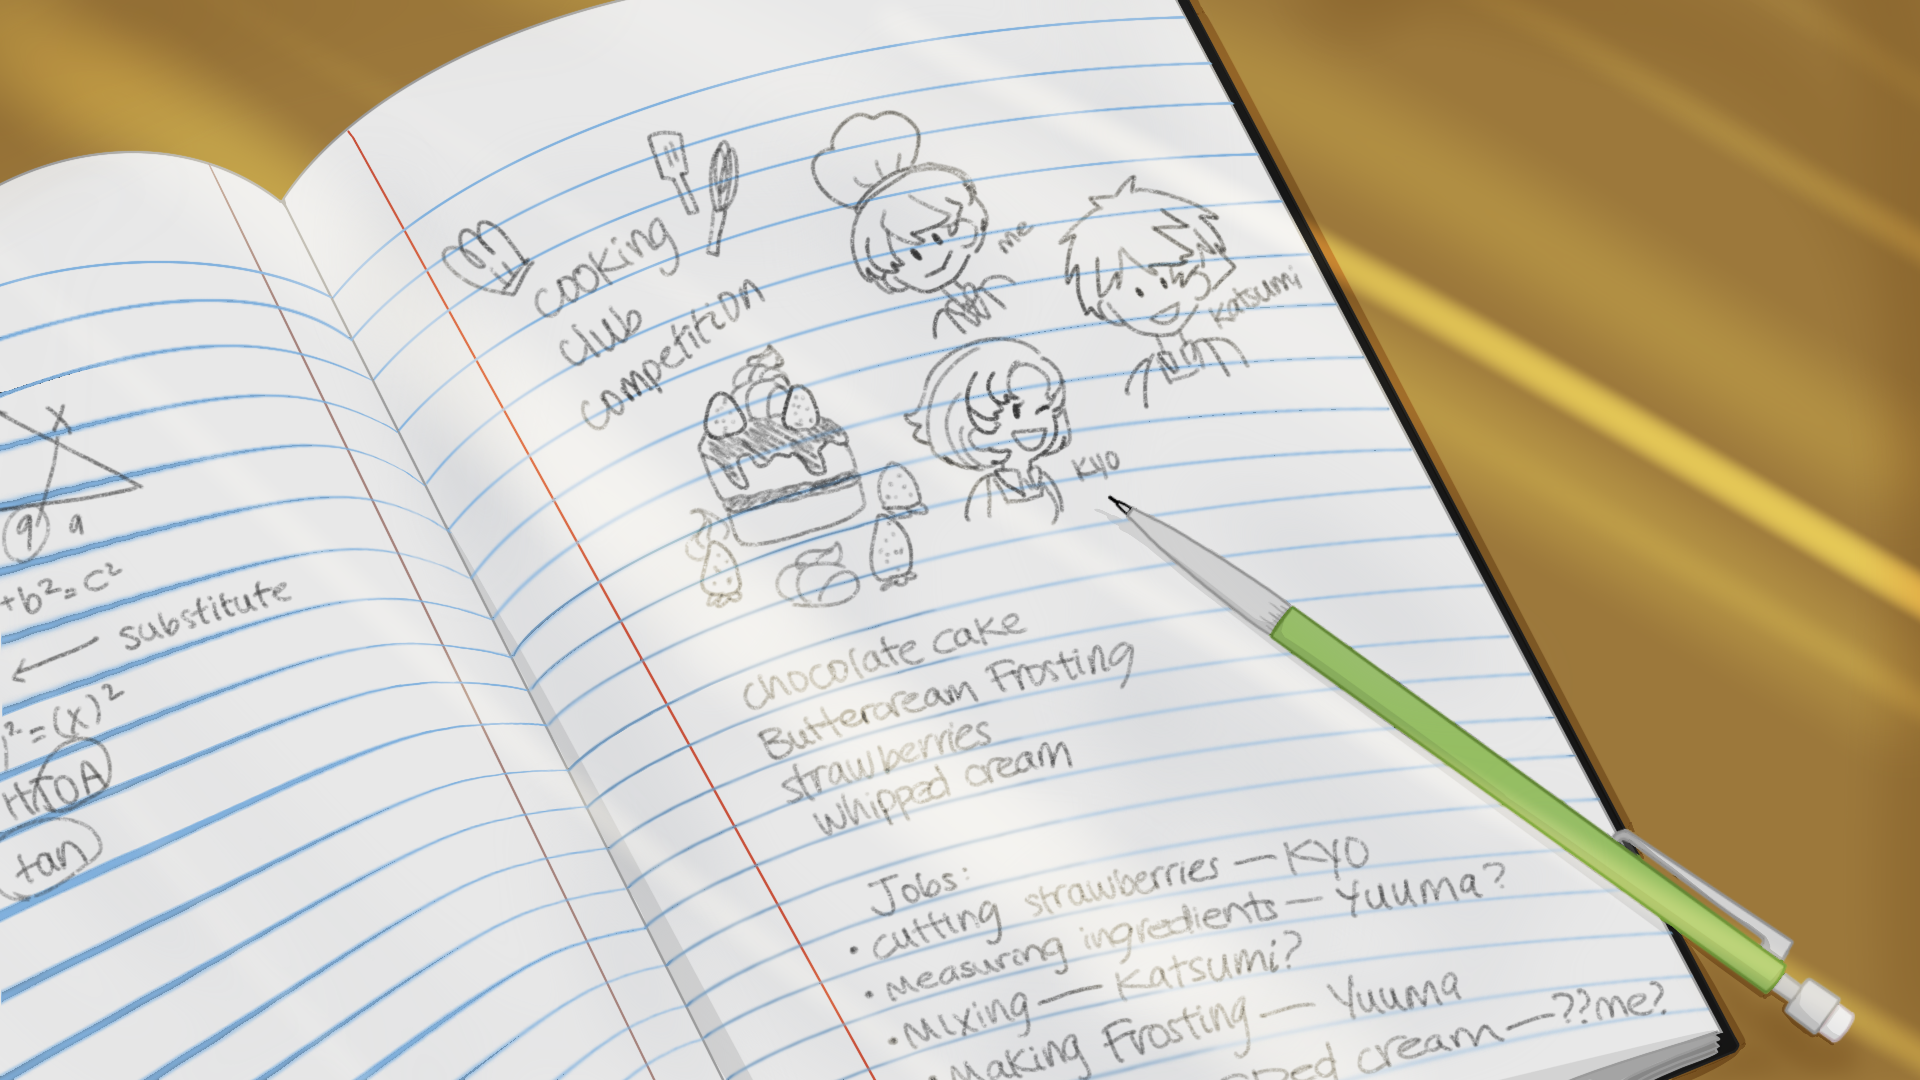 x
9 a
+b²=c²
← substitute
)²=(x)²
HTOA
tan
cooking
club
competition
me
Katsumi
Kyo
chocolate cake
Buttercream Frosting
strawberries
whipped cream
Jobs:
• cutting strawberries — KYO
• measuring ingredients — Yuuma?
• Mixing — Katsumi?
• Making Frosting — Yuuma
cream — ??me?